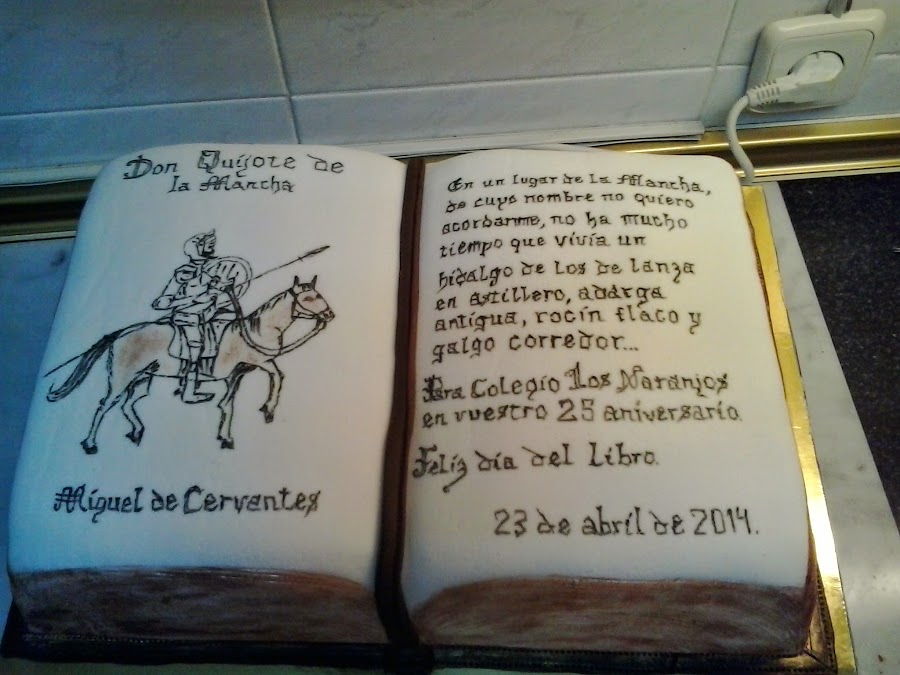 Don Quijote de
la Mancha
Miguel de Cervantes
En un lugar de la Mancha,
de cuyo nombre no quiero
acordarme, no ha mucho
tiempo que vivía un
hidalgo de los de lanza
en astillero, adarga
antigua, rocín flaco y
galgo corredor...
Para Colegio Los Naranjos
en vuestro 25 aniversario.
Feliz día del libro.
23 de abril de 2014.